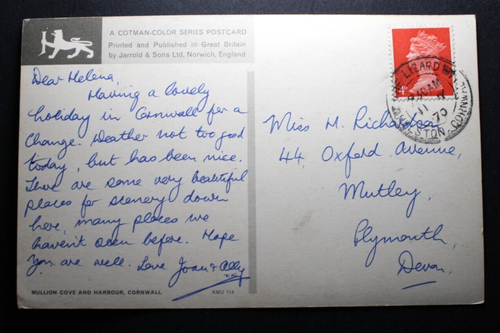 A COTMAN-COLOR SERIES POSTCARD
Printed and Published in Great Britain
by Jarrold & Sons Ltd, Norwich, England
Dear Helena,
Having a lovely
holiday in Cornwall for a
Change. Weather not too good
today, but has been nice.
There are some very beautiful
places for scenery down
here, many places we
haven't seen before. Hope
you are well. Love Joan & Olly
MULLION COVE AND HARBOUR, CORNWALL
Miss H. Richardson
44, Oxford Avenue,
Mutley,
Plymouth,
Devon.
THE LIZARD
HELSTON CORNWALL
70